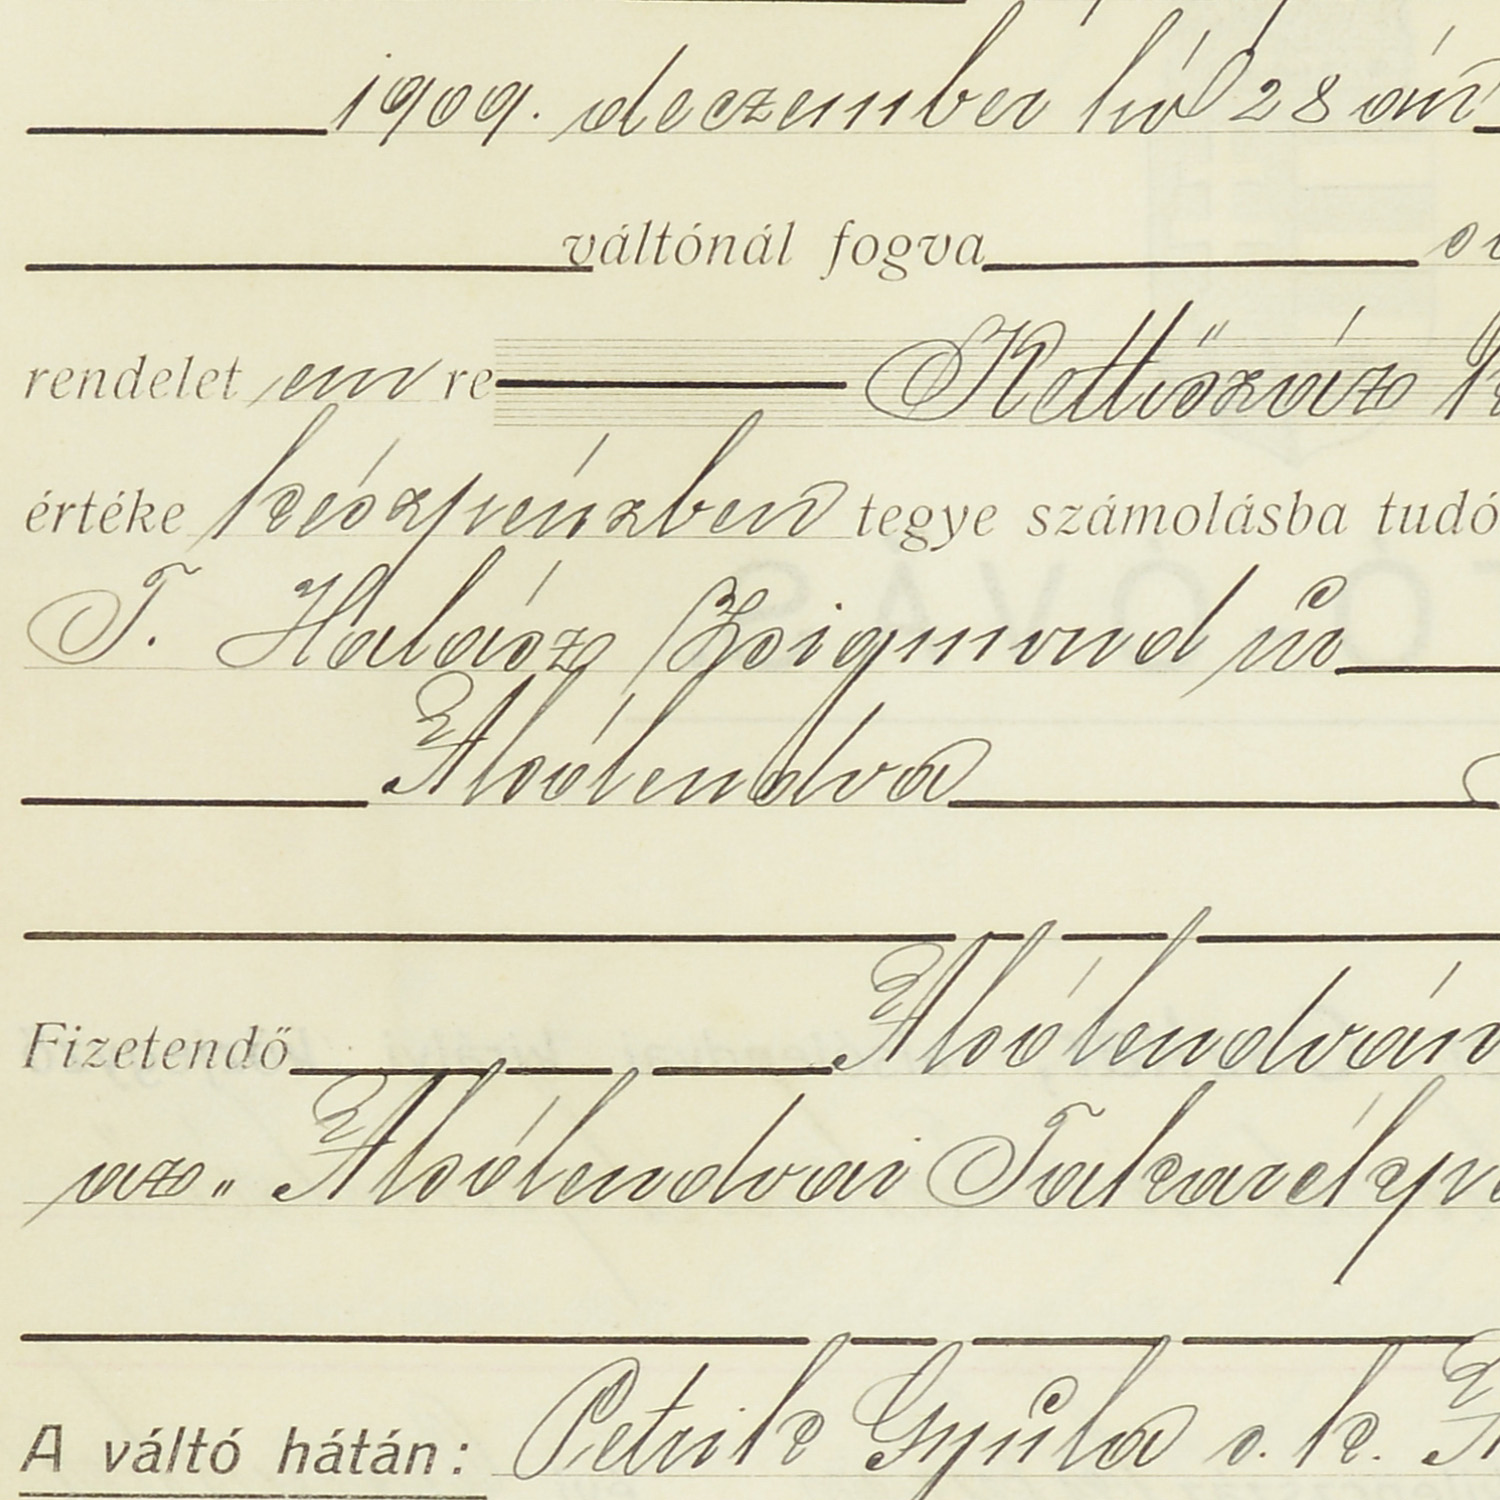 1909. deczember hó 28 án
váltónál fogva
rendelet em re Kettőszáz
értéke készpénzben tegye számolásba tudó
T. Halász Zsigmond úr
Alsólendva
Fizetendő Alsólendván
az „Alsólendvai Takarékp
A váltó hátán: Petrik Gyula s. k.